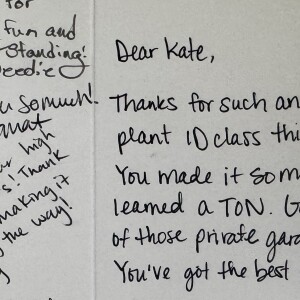 for
Fun and
Standing!
eedie
u so much!
anat
ur high
s! Thank
making it
the way!
Dear Kate,
Thanks for such an
plant ID class thi
You made it so m
learned a TON. G
of those private gar
You've got the best